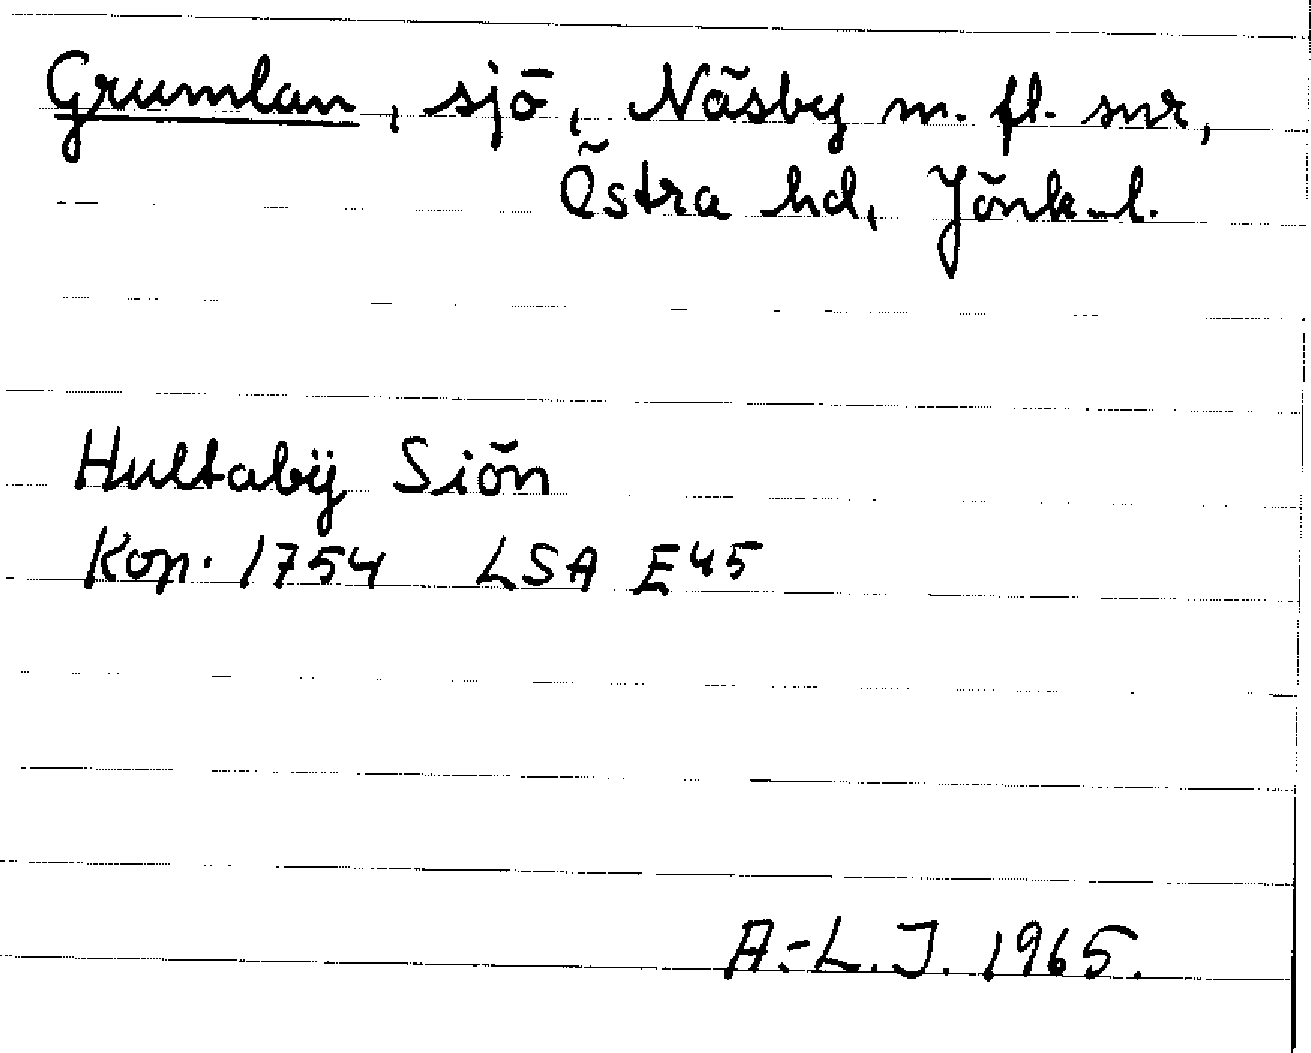 Grumlan, sjö, Näsby m. fl. snr,
Östra hd, Jönk. l.
Hultabÿ Siön
Kop. 1754 LSA E45
A.-L. J. 1965.